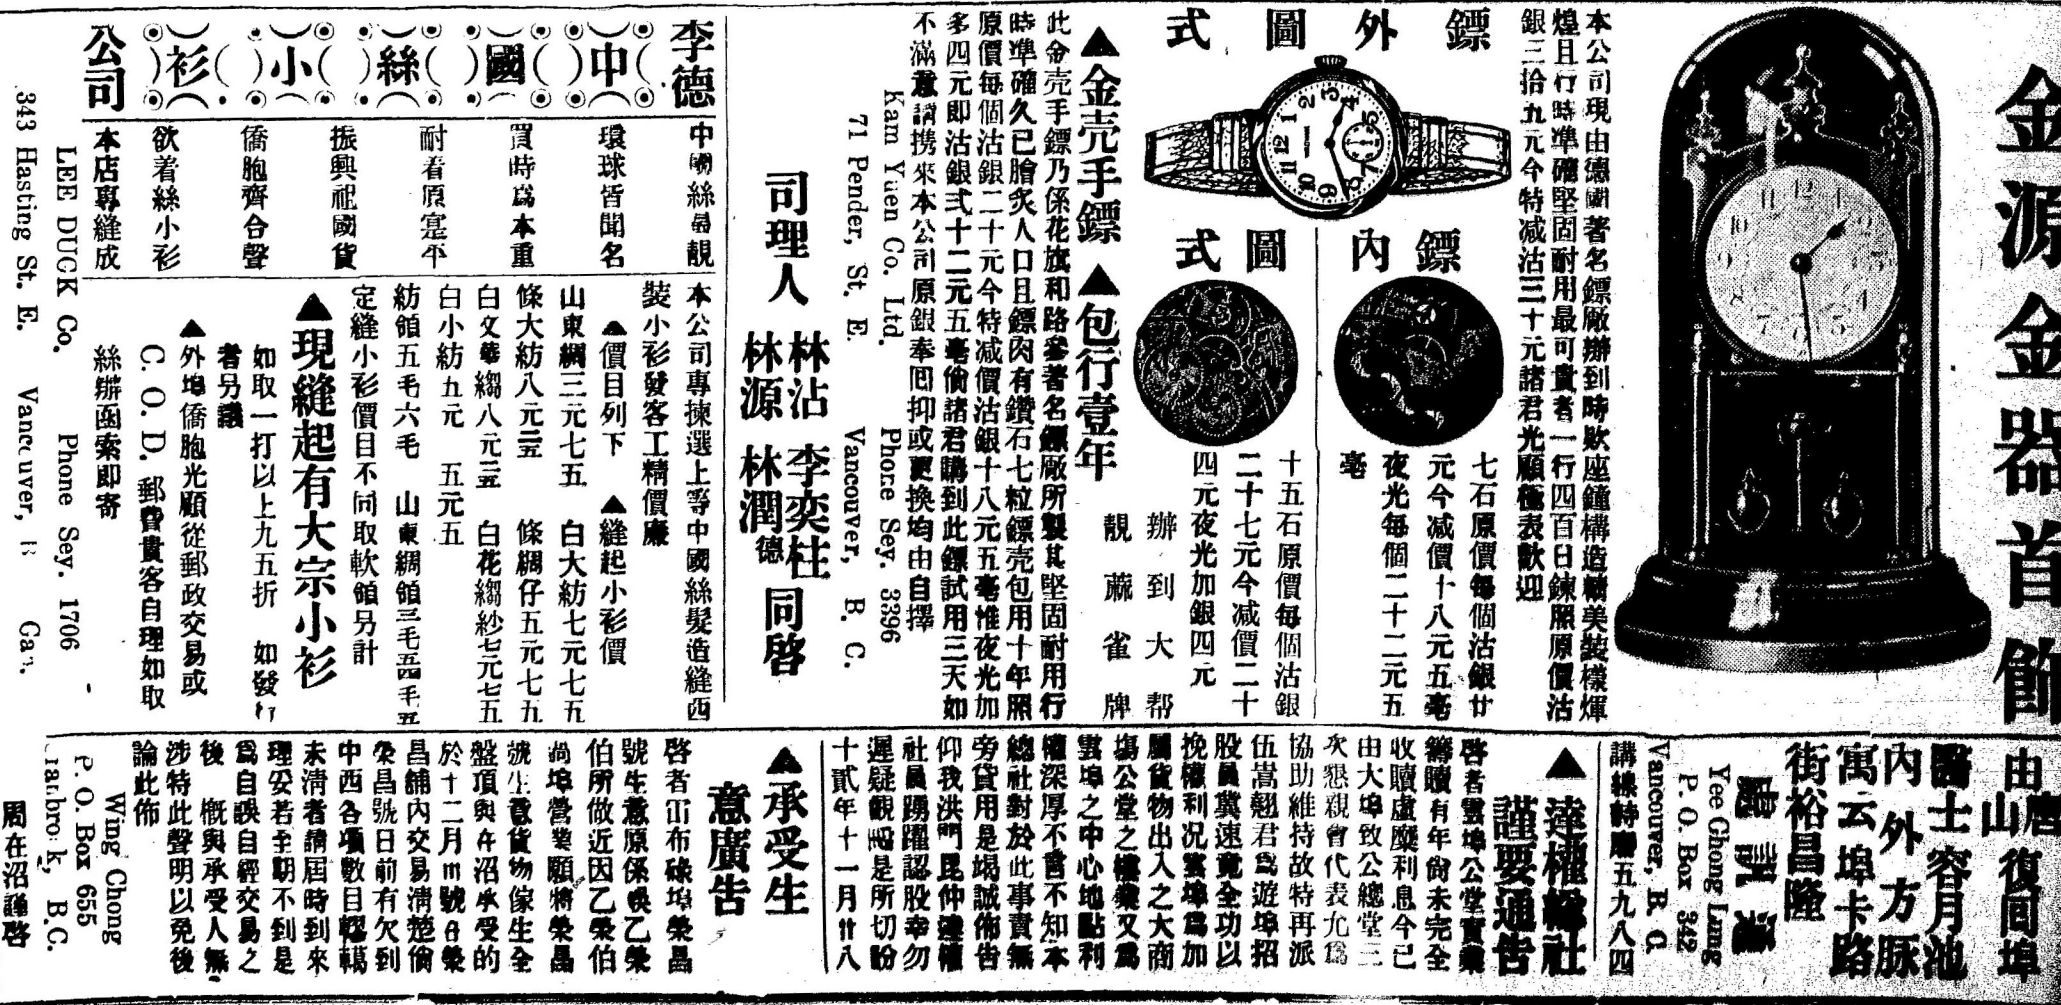 金源金器首飾
本公司現由德國著名鏢廠辦到時欵座鐘構造精美裝樣煇
煌且行時準確堅固耐用最可貴者一行四百日鍊照原價沽
銀三拾九元今特减沽三十元諸君光顧極表歡迎
鏢外圖式
鏢內圖式
七石原價每個沽銀廿
元今减價十八元五毫
夜光每個二十二元五
毫
十五石原價每個沽銀
二十七元今减價二十
四元夜光加銀四元
辦到大帮
靚蔴雀牌
▲金壳手鏢▲包行壹年
此金壳手鏢乃係花旗和路參著名鏢廠所製其堅固耐用行
時準確久已膾炙人口且鏢肉有鑽石七粒鏢壳包用十年照
原價每個沽銀二十元今特减價沽銀十八元五毫惟夜光加
多四元即沽銀弍十二元五毫倘諸君購到此鏢試用三天如
不滿意請携來本公司原銀奉囘抑或更換均由自擇
Kam Yuen Co. Ltd. Phone Sey. 3296
71 Pender, St. E. Vancouver, B. C.
司理人 林沾 李奕柱
林源 林潤德 同啓
李德中國絲小衫公司
中國絲最靚
環球皆聞名
買時爲本重
耐着原寔平
振興祖國貨
僑胞齊合聲
欲着絲小衫
本店專縫成
本公司專揀選上等中國絲髮造縫西
裝小衫發客工精價廉
▲價目列下 ▲縫起小衫價
山東綢三元七五 白大紡七元七五
條大紡八元二五 條綢仔五元七五
白文華縐八元二五 白花縐紗七元七五
白小紡九元 五元五
紡領五毛六毛 山東綢領三毛五四毛五
定縫小衫價目不同取軟領另計
▲現縫起有大宗小衫
如取一打以上九五折 如發行
者另議
▲外埠僑胞光顧從郵政交易或
C. O. D. 郵費貴客自理如取
絲辦函索即寄
LEE DUCK Co. Phone Sey. 1706
343 Hasting St. E. Vancouver, B Can.
由唐山復囘埠
醫士容月池
內外方脉
寓云埠卡路
街裕昌隆
Yee Chong Lung
P. O. Box 342
Vancouver, B. C.
五九八四
▲達權總社
謹要通告
啓者雲埠公堂實業
籌贖有年尙未完全
收贖虛糜利息今已
由大埠致公總堂三
次懇親會代表允爲
協助維持故特再派
伍嵩翹君爲遊埠招
股員冀速竟全功以
挽權利况雲埠爲加
屬貨物出入之大商
塲公堂之樓業又爲
雲埠之中心地點利
權深厚不言不知本
總社對於此事責無
旁貸用是竭誠佈告
仰我洪門昆仲達權
社員踴躍認股幸勿
遲疑觀望是所切盼
十貳年十一月廿八
▲承受生
意廣告
啓者
號生意原係
伯所做近因乙榮伯
號生意貨物傢生全
盤頂與在沼承受的
昌舖內交易清楚倘
榮昌號日前有欠到
中西各項數目轇轕
未清者請屆時到來
理妥若至期不到是
爲自悞自經交易之
後 槪與承受人無
涉特此聲明以免後
論此佈
Wing Chong
P. O. Box 655
B. C.
周在沼謹啓